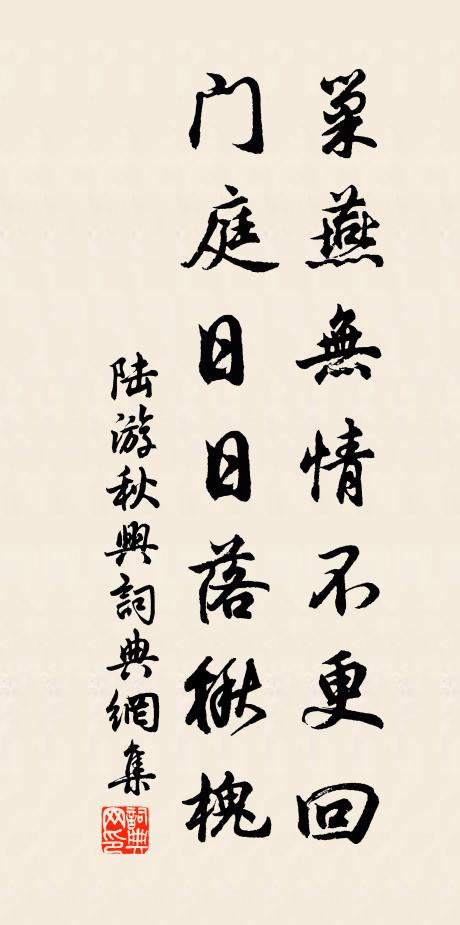 巢燕無情不更回
门庭日日落楸槐
陆游秋興詞典網集
詞典网印